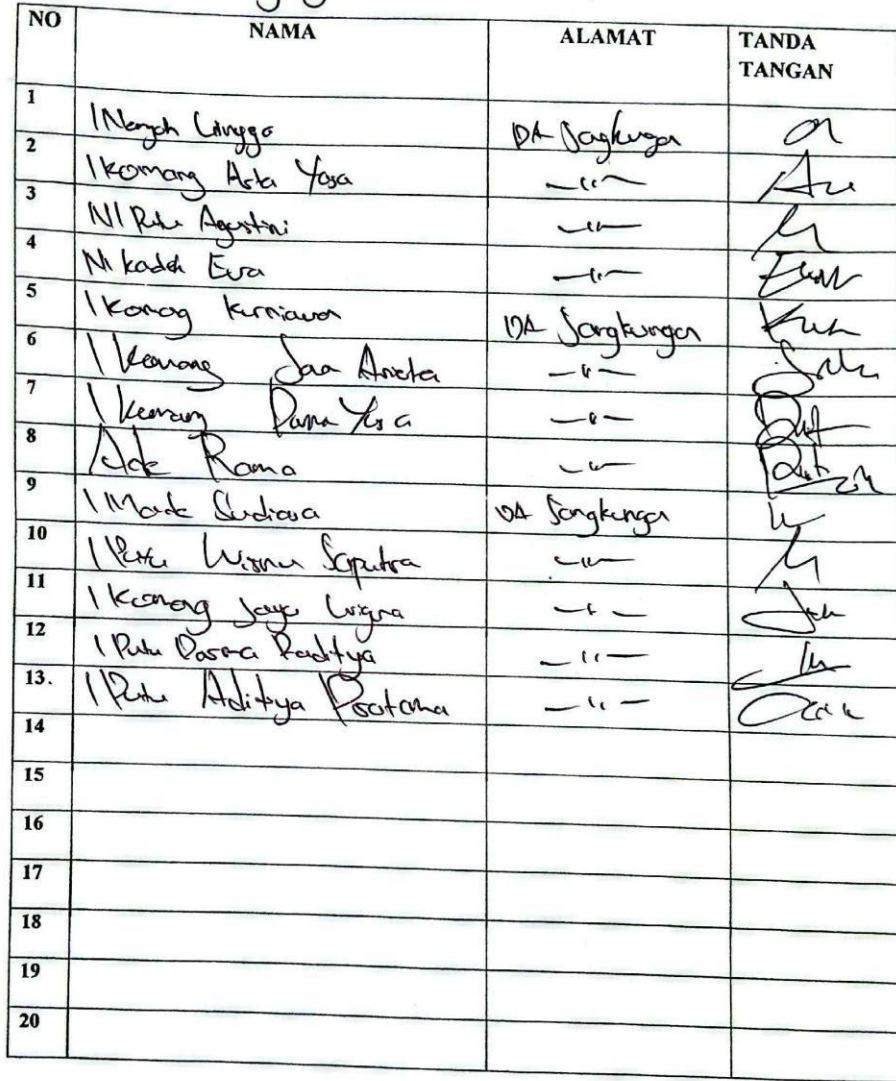 NO NAMA ALAMAT TANDA TANGAN
1 I Nengah Linggo DA Sangkungan
2 I Komang Arta Yasa —"—
3 NI Putu Agustini —"—
4 Ni Kadek Eva —"—
5 I Komang Kurniawan DA Sangkungan
6 I Komang Jaa —"—
7 I Komang Dama Yasa —"—
8 Ade Rama —"—
9 I Made Sudiasa DA Sangkungan
10 I Putu Wisnu Saputra —"—
11 I Komang Jaya —"—
12 I Putu Darma Raditya —"—
13. I Putu Aditya Pratama —"—
14
15
16
17
18
19
20